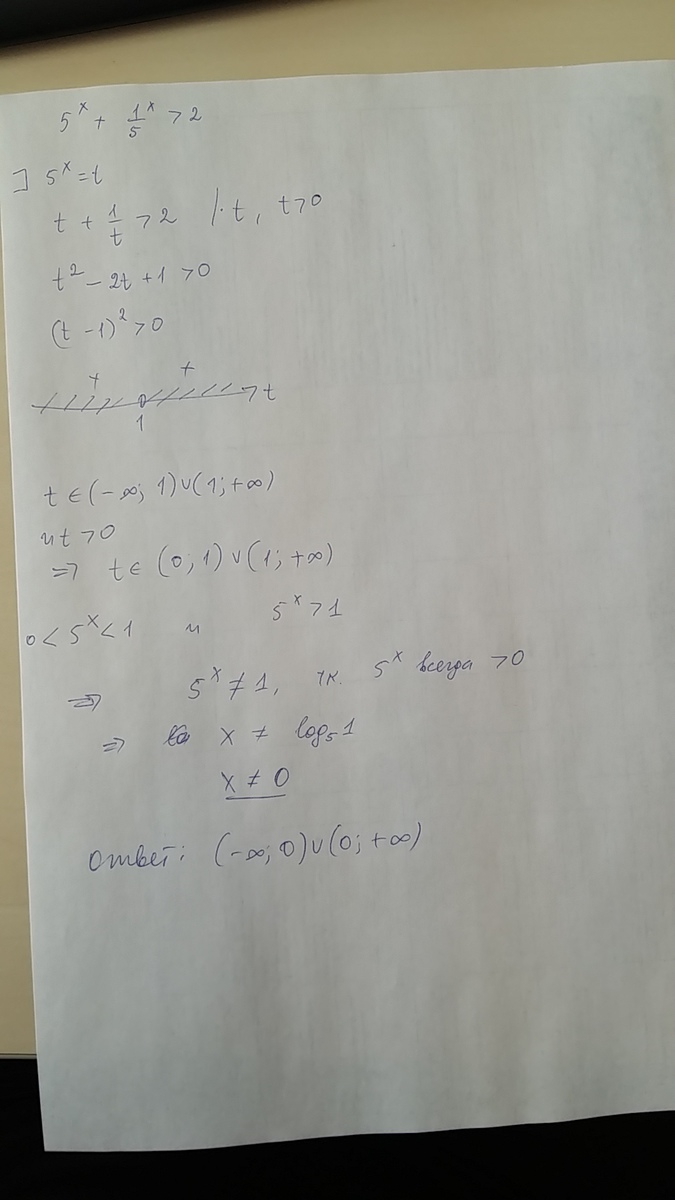 5^x + 1/5^x > 2
] 5^x = t
t + 1/t > 2 | · t, t > 0
t² - 2t + 1 > 0
(t - 1)² > 0
+ +
1 t
t ∈ (-∞; 1) ∪ (1; +∞)
и t > 0
=> t ∈ (0; 1) ∪ (1; +∞)
0 < 5^x < 1 и 5^x > 1
=> 5^x ≠ 1, тк. 5^x всегда > 0
=> x ≠ log₅1
x ≠ 0
Ответ: (-∞; 0) ∪ (0; +∞)